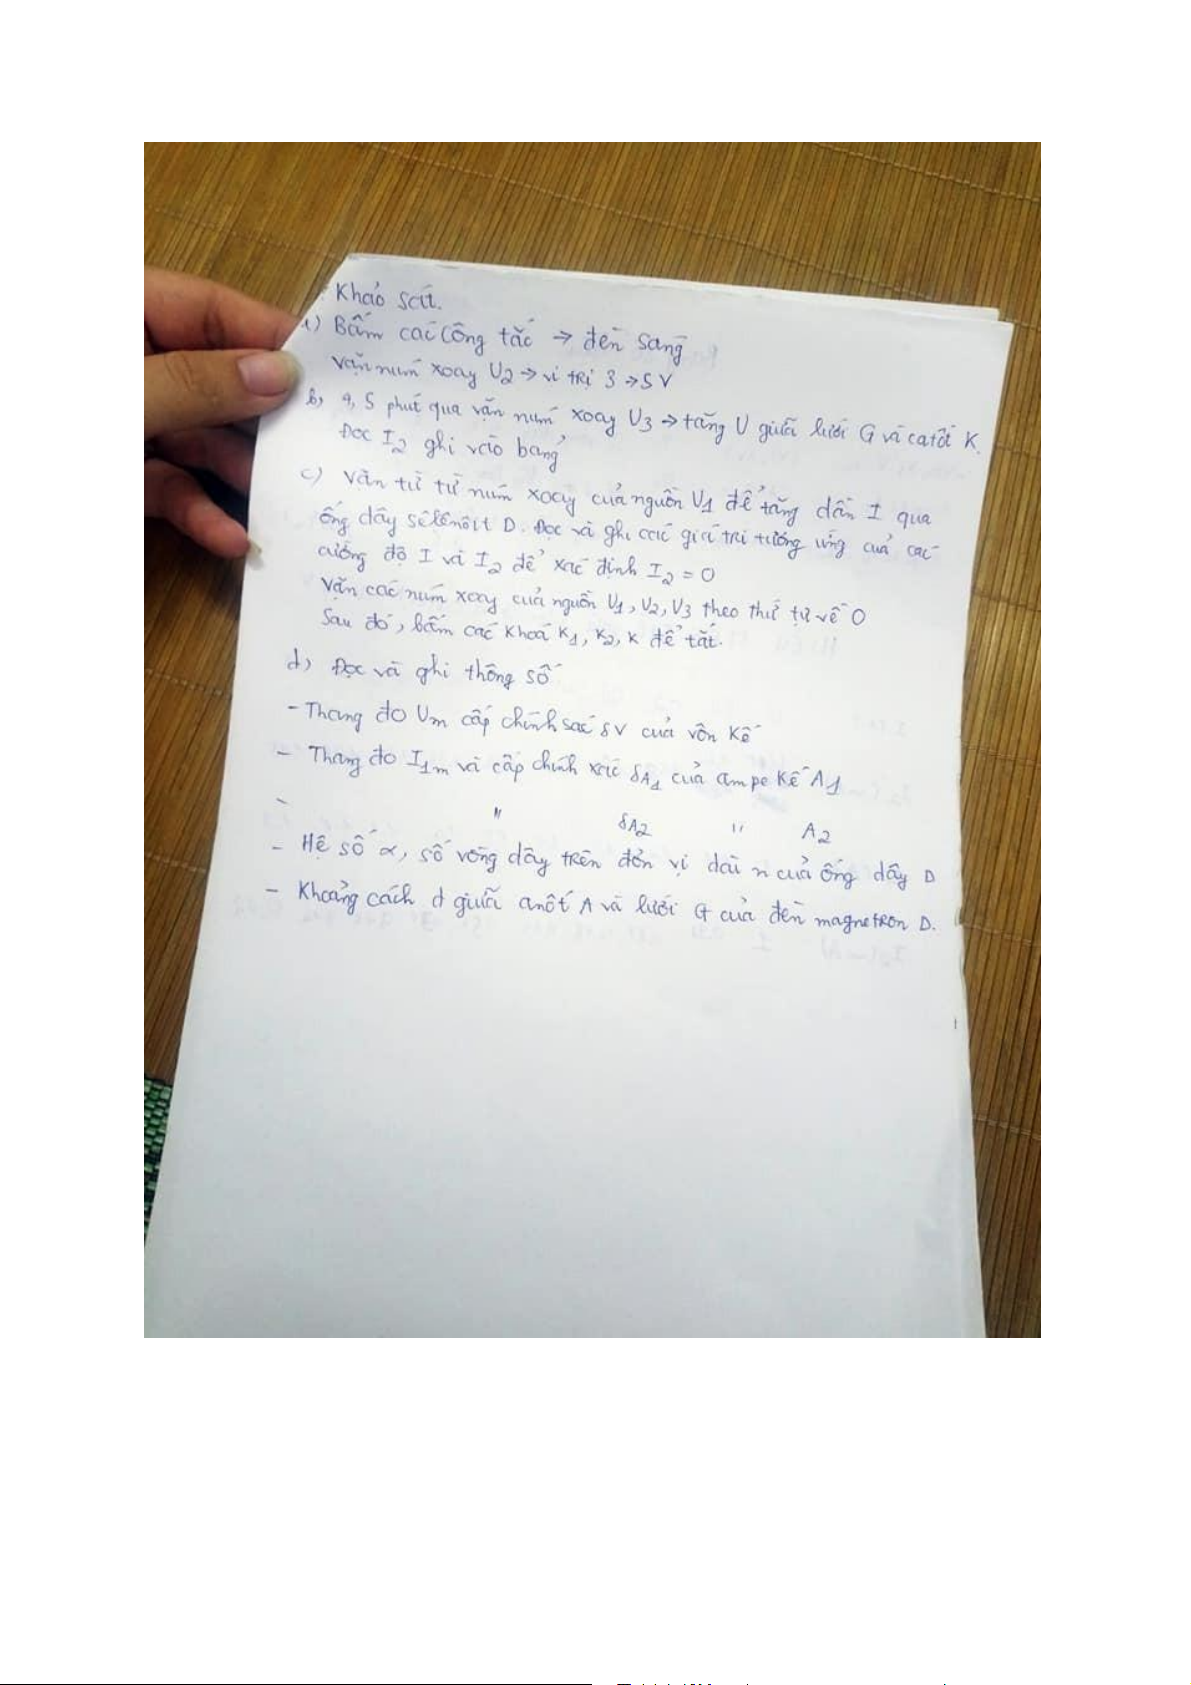 Khảo sát.
a) Bấm các công tắc → đèn sáng
Vặn núm xoay U2 → vị trí 3 → 5 V
b, 4, 5 phút qua vặn núm xoay U3 → tăng U giữa lưới G và catôt K.
Đọc I2 ghi vào bảng
c) Vặn từ từ núm xoay của nguồn U1 để tăng dần I qua
ống dây sêlênôit D. Đọc và ghi các giá trị tương ứng của các
cường độ I và I2 để xác định I2 = 0
Vặn các núm xoay của nguồn U1, U2, U3 theo thứ tự về 0
Sau đó, bấm các khoá K1, K2, K để tắt.
d) Đọc và ghi thông số
- Thang đo Um cấp chính sác δV của vôn kế
- Thang đo I1m và cấp chính xác δA1 của ampe kế A1
- " δA2 " A2
- Hệ số α, số vòng dây trên đơn vị dài n của ống dây D
- Khoảng cách d giữa anôt A và lưới G của đèn magnetron D.